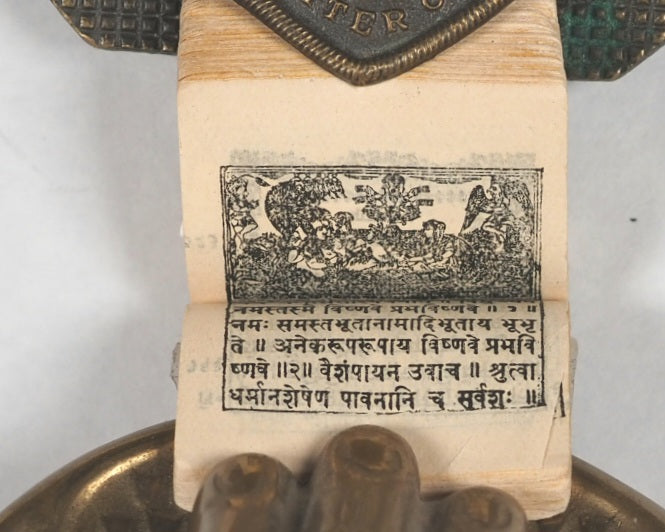 TTER O
नमस्तस्मै विष्णवे प्रभविष्णवे ॥ १ ॥
नमः समस्तभूतानामादिभूताय भूभृ
ते ॥ अनेकरूपरूपाय विष्णवे प्रभवि
ष्णवे ॥२॥ वैशंपायन उवाच ॥ श्रुत्वा
धर्मानशेषेण पावनानि च सर्वशः ॥